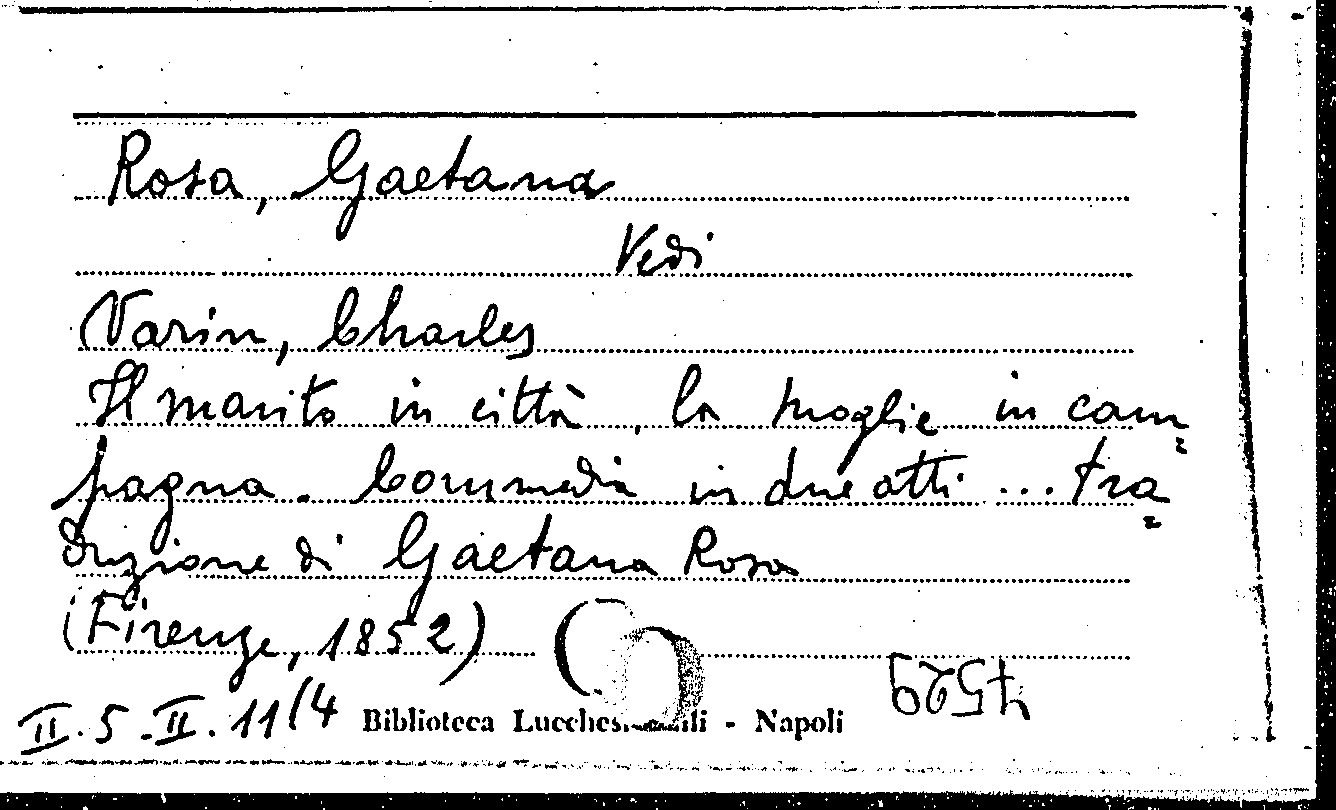 Rosa, Gaetana
Vedi
Varin, Charles
Il marito in città, la moglie in cam=
pagna. Commedia in due atti ... tra=
duzione di Gaetana Rosa
(Firenze, 1852)
II.5.-II.11(4 Biblioteca - Napoli
4529